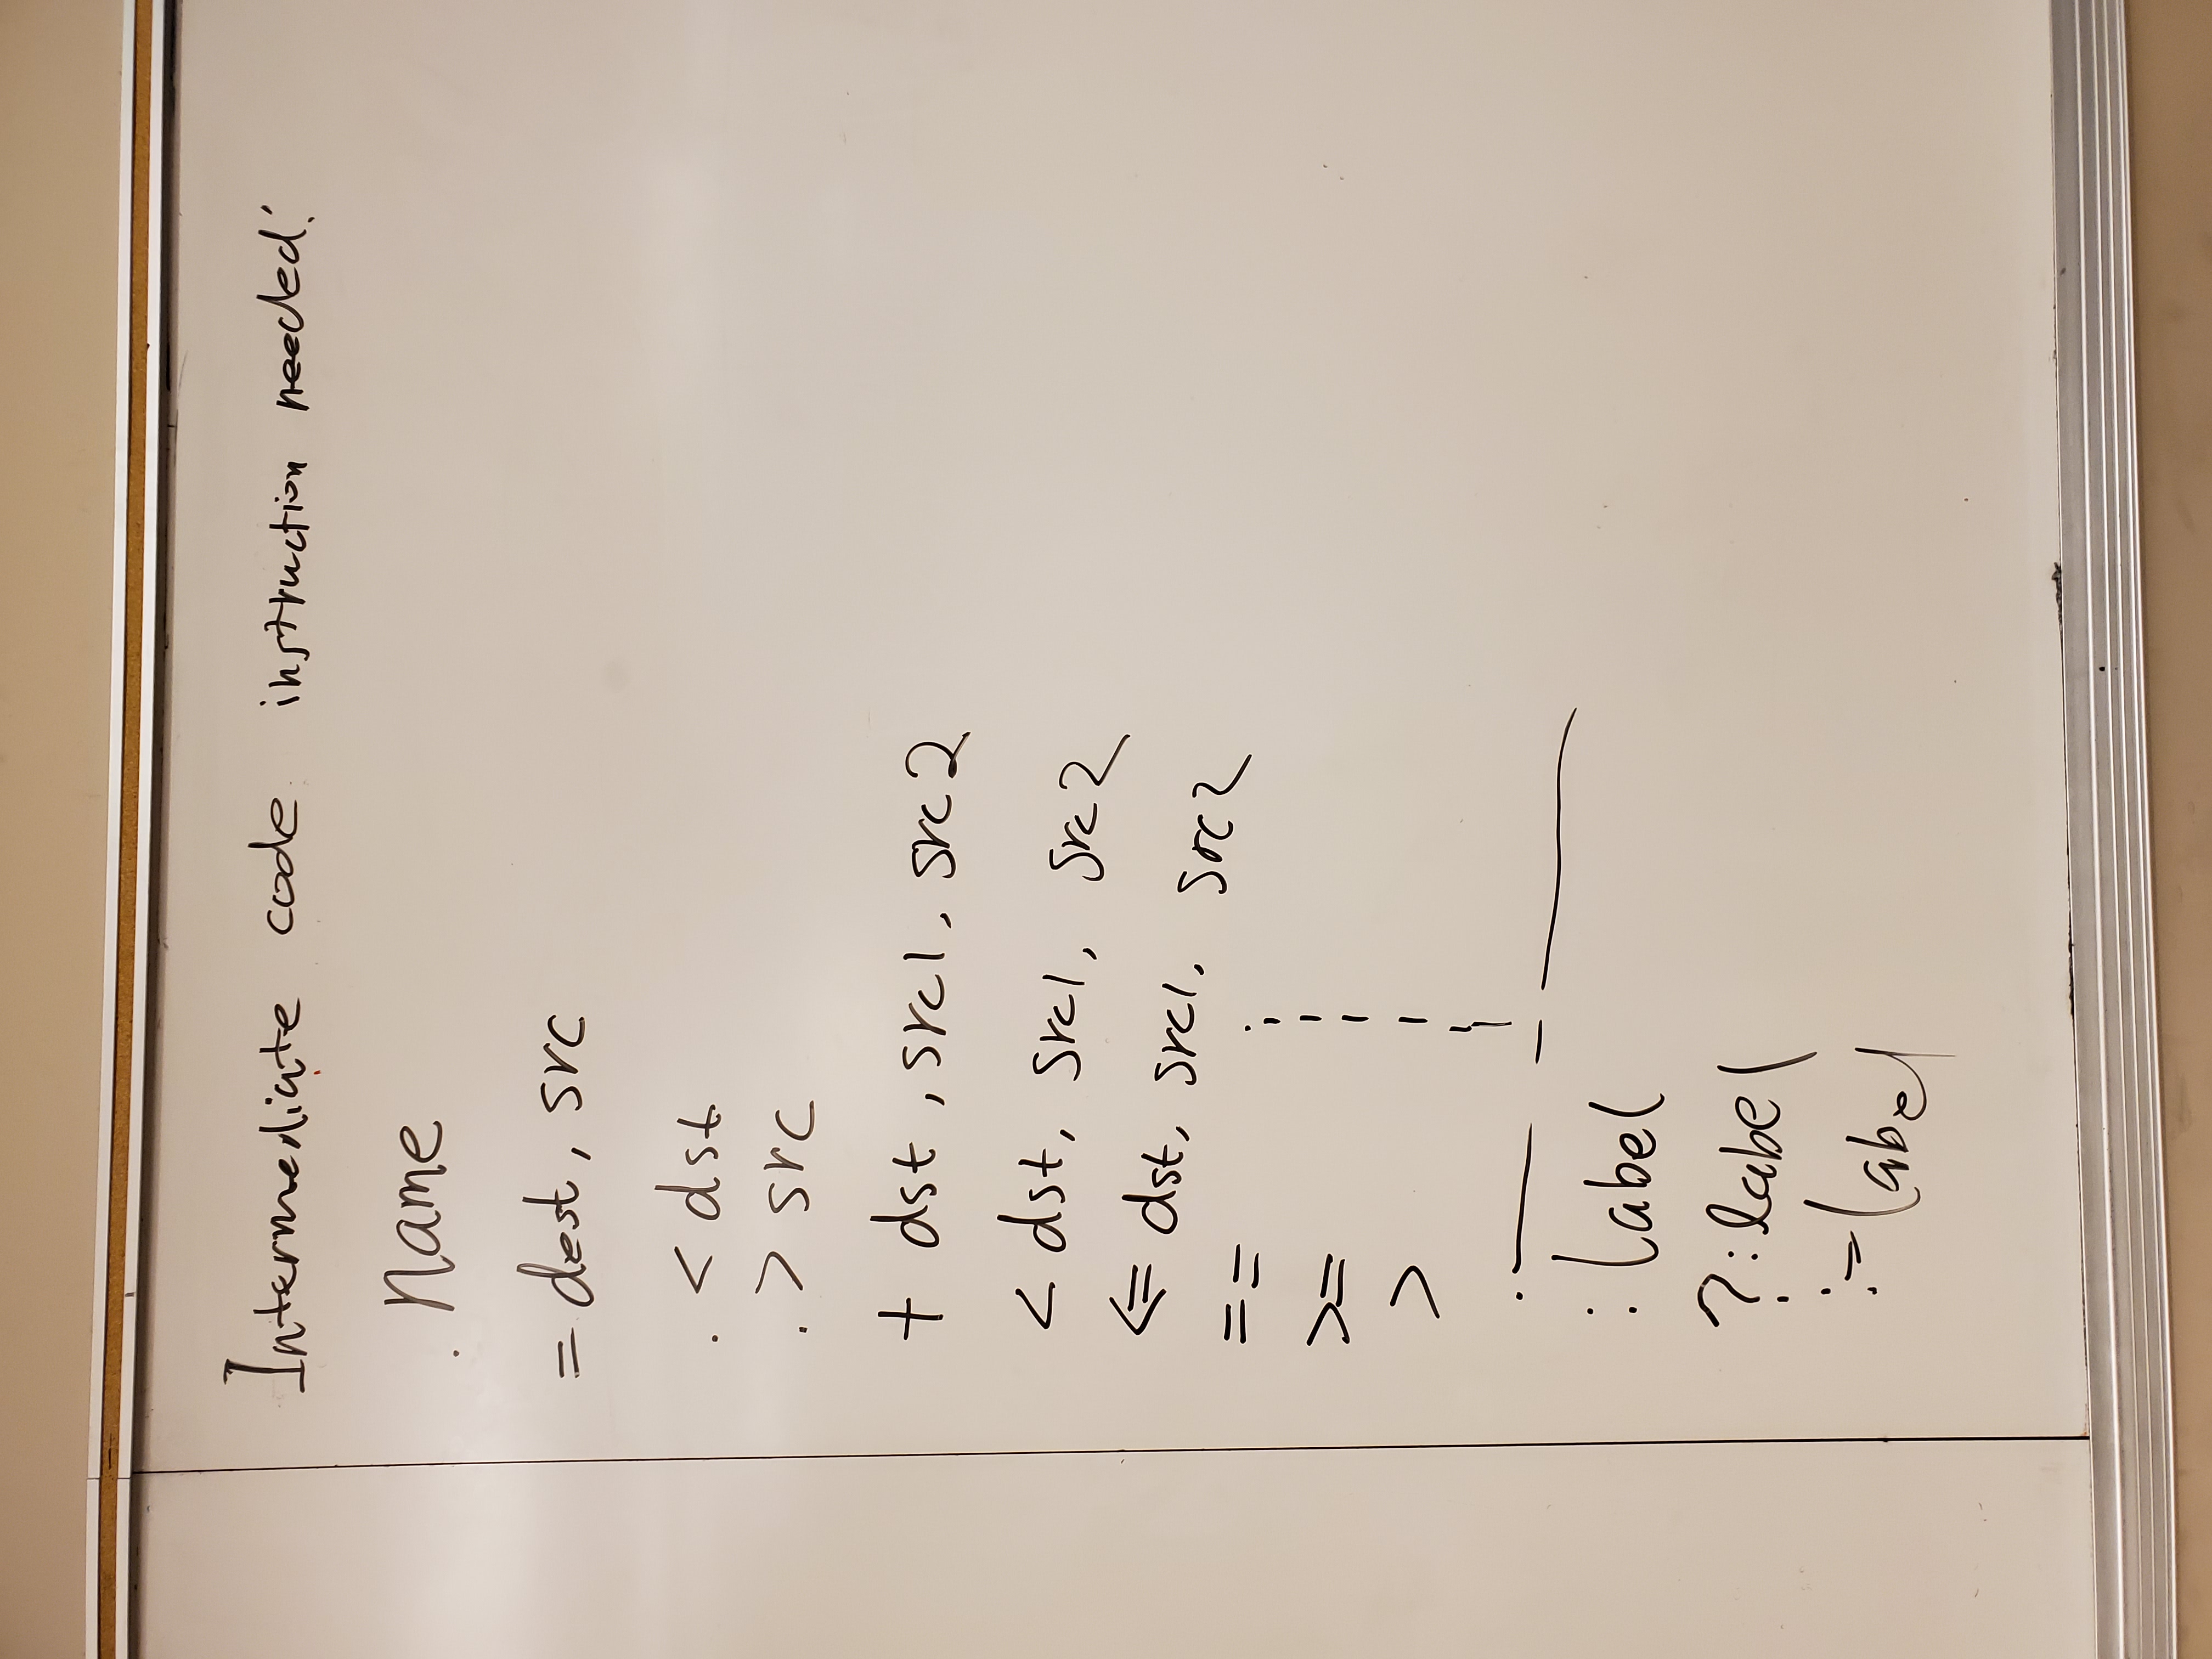 Intermediate code instruction needed:
. name
= dest, src
. < dst
. > src
+ dst, src1, src2
< dst, src1, src2
<= dst, src1, src2
==
>=
>
: label
?: label
:= label